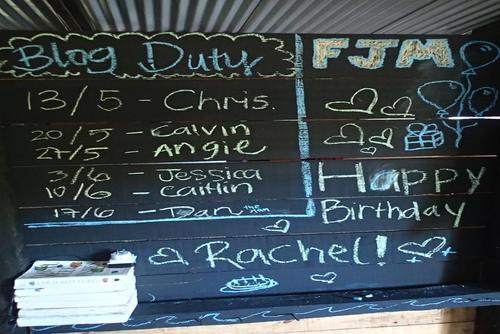 Blog Duty
13/5 - Chris.
20/5 - Calvin
27/5 - Angie
3/6 - Jessica
10/6 - Caitlin
17/6 - Dan the man
FJM
Happy
Birthday
Rachel!